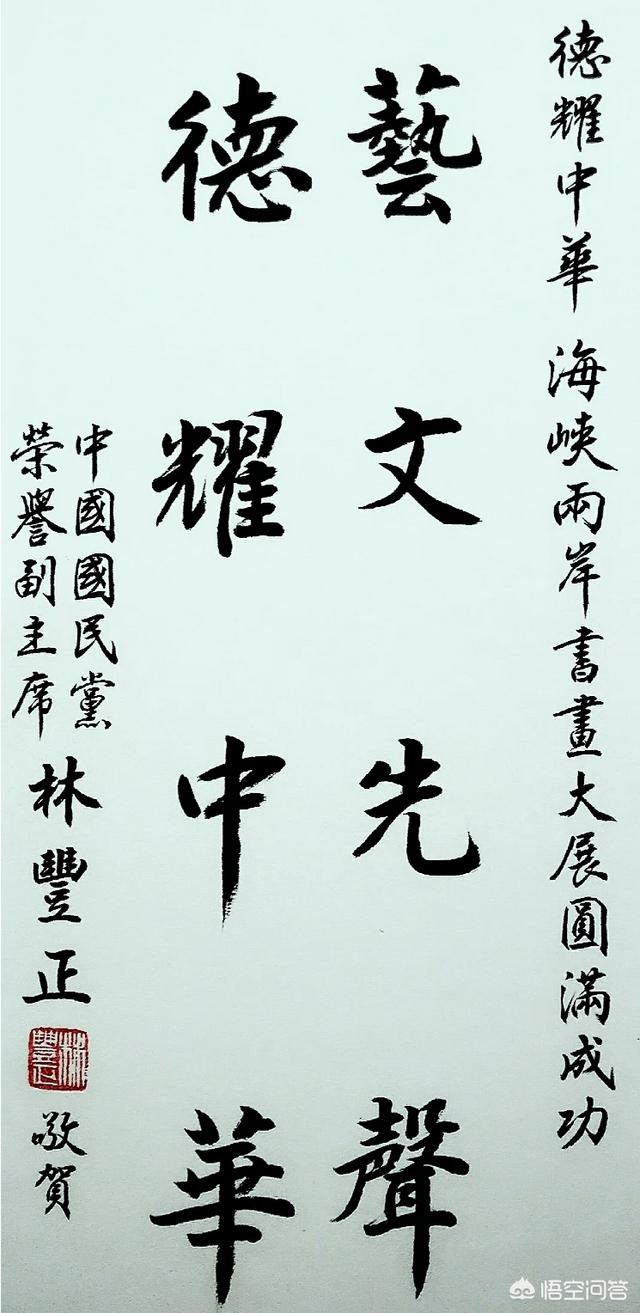 德耀中華 海峽兩岸書畫大展圓滿成功
藝文先聲
德耀中華
中國國民黨
榮譽副主席
林豐正
林豐正
敬賀
悟空问答